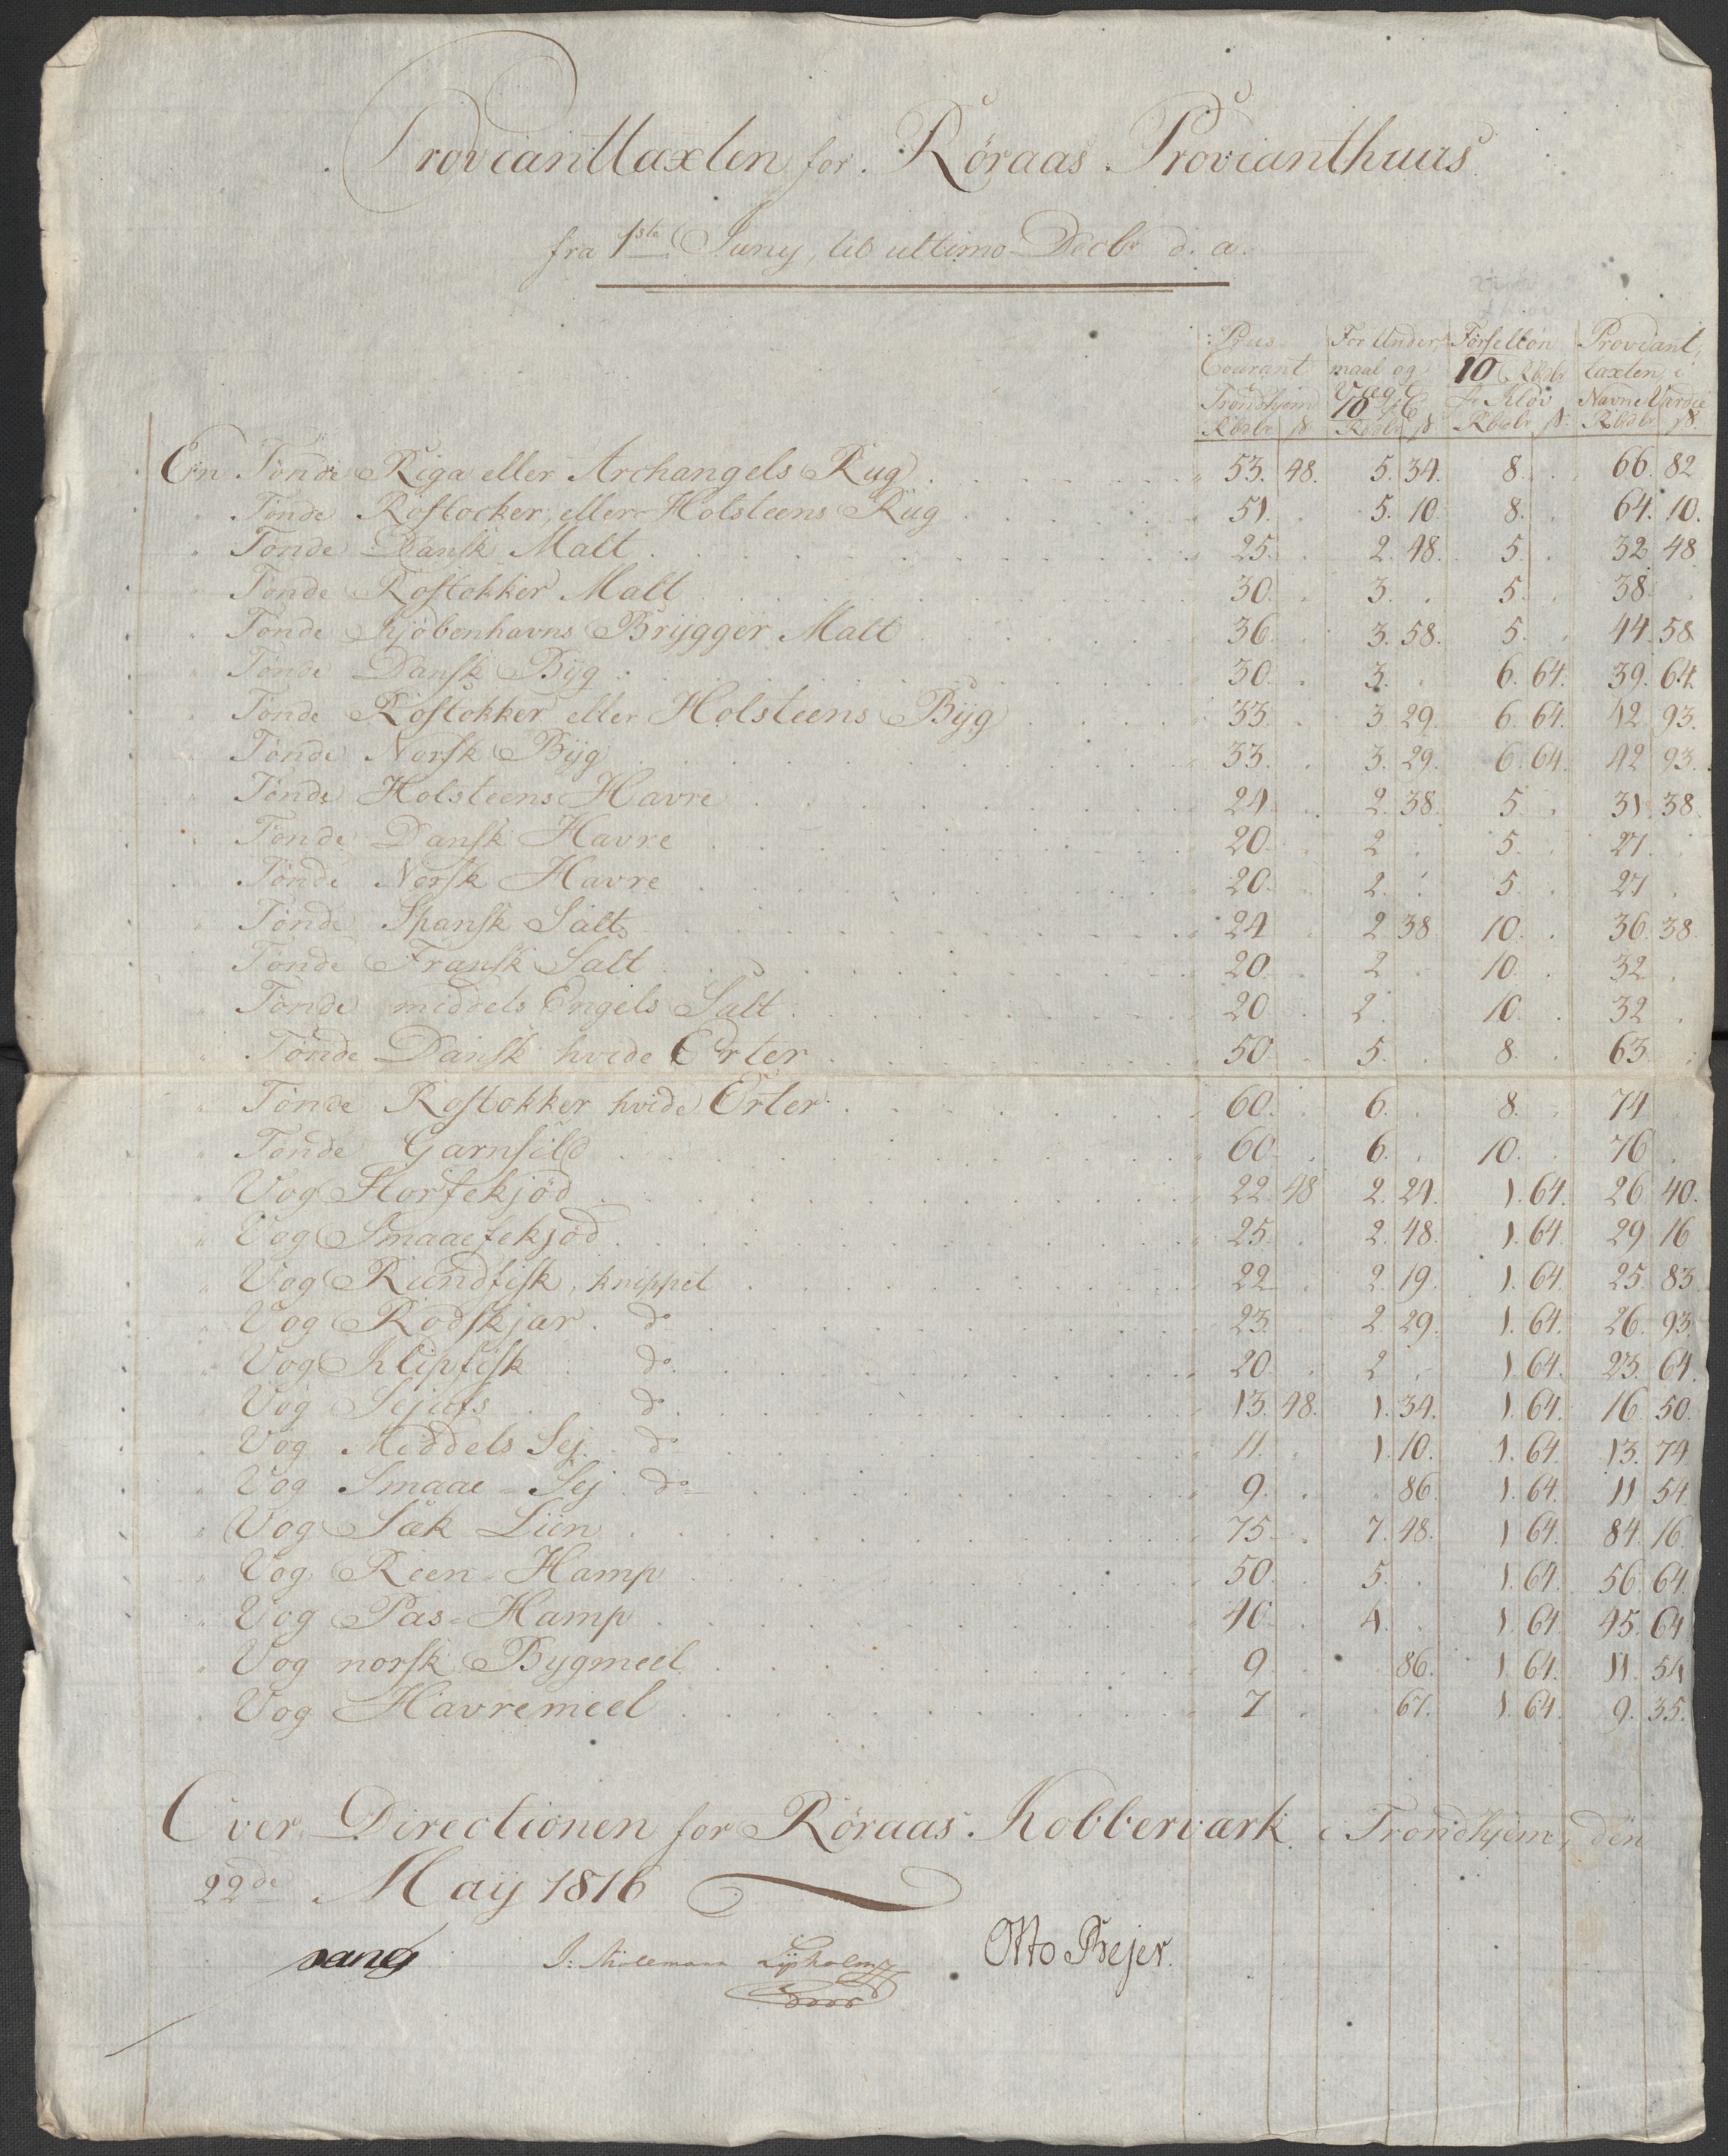 Provianttaxten for Røraas Provianthuus
fra 1ste Juny, til ultimo Decbr d. a.
Priis Courant Trondhjem Rbdlr ß | For Under maal og Vegt 10 pC Rbdlr ß | Førselløn 10 Rbdlr pr Kløv Rbdlr ß | Proviant taxten i Navne Værdie Rbdlr ß
En Tönde Riga eller Archangels Rug 53. 48. 5. 34. 8. 66. 82
" Tönde Rostocker, eller Holsteens Rug 51. 5. 10 8. 64. 10.
" Tönde Dansk Malt 25. 2. 48. 5. 32 48
" Tönde Rostokker Malt 30. 3. 5. 38.
" Tönde Kjöbenhavns Brygger Malt 36. 3. 58. 5. 44. 58
" Tönde Dansk Byg 30. 3. 6. 64. 39. 64
" Tönde Rostokker eller Holsteens Byg 33. 3. 29. 6. 64. 42 93.
" Tönde Norsk Byg 33. 3. 29. 6. 64. 42 93.
" Tönde Holsteens Havre 24 2. 38. 5. 31. 38.
" Tönde Dansk Havre 20. 2 5. 27.
" Tönde Norsk Havre 20. 2. 5. 27
" Tönde Spansk Salt 24 2 38 10. 36. 38.
" Tönde Fransk Salt 20. 2 10. 32
" Tönde middels Engels Salt 20 2. 10. 32
" Tönde Dansk hvide Erter 50 5. 8. 63
" Tönde Rostokker hvide Erter 60. 6. 8. 74
" Tönde Garnsild 60. 6. 10. 76
" Vog Storfekjød 22. 48 2. 24. 1. 64. 26 40.
" Vog Smaaefekjød 25. 2. 48. 1. 64. 29 16
" Vog Rundfisk, knippet 22 2. 19. 1. 64. 25. 83
" Vog Rodskjær do 23. 2. 29. 1. 64. 26. 93.
" Vog Klipfisk do 20 2 1. 64. 23. 64.
" Vog Sejufs do 13. 48. 1. 34. 1. 64. 16 50.
" Vog Middels Sej. do 11. 1. 10. 1. 64. 13. 74
" Vog Smaae-Sej do 9. 86. 1. 64. 11 54
" Vog Sæk Liin 75 7. 48. 1 64. 84. 16.
" Vog Reen-Hamp 50. 5. 1. 64. 56. 64
" Vog Pas-Hamp 40 4. 1. 64 45. 64
" Vog norsk Bygmeel 9 86. 1 64. 11. 54
" Vog Havremeel 7 67. 1. 64. 9. 35.
Over Directionen for Røraas Kobberværk i Trondhjem, den
22de Maij 1816
Lysholm Otto Bejer.